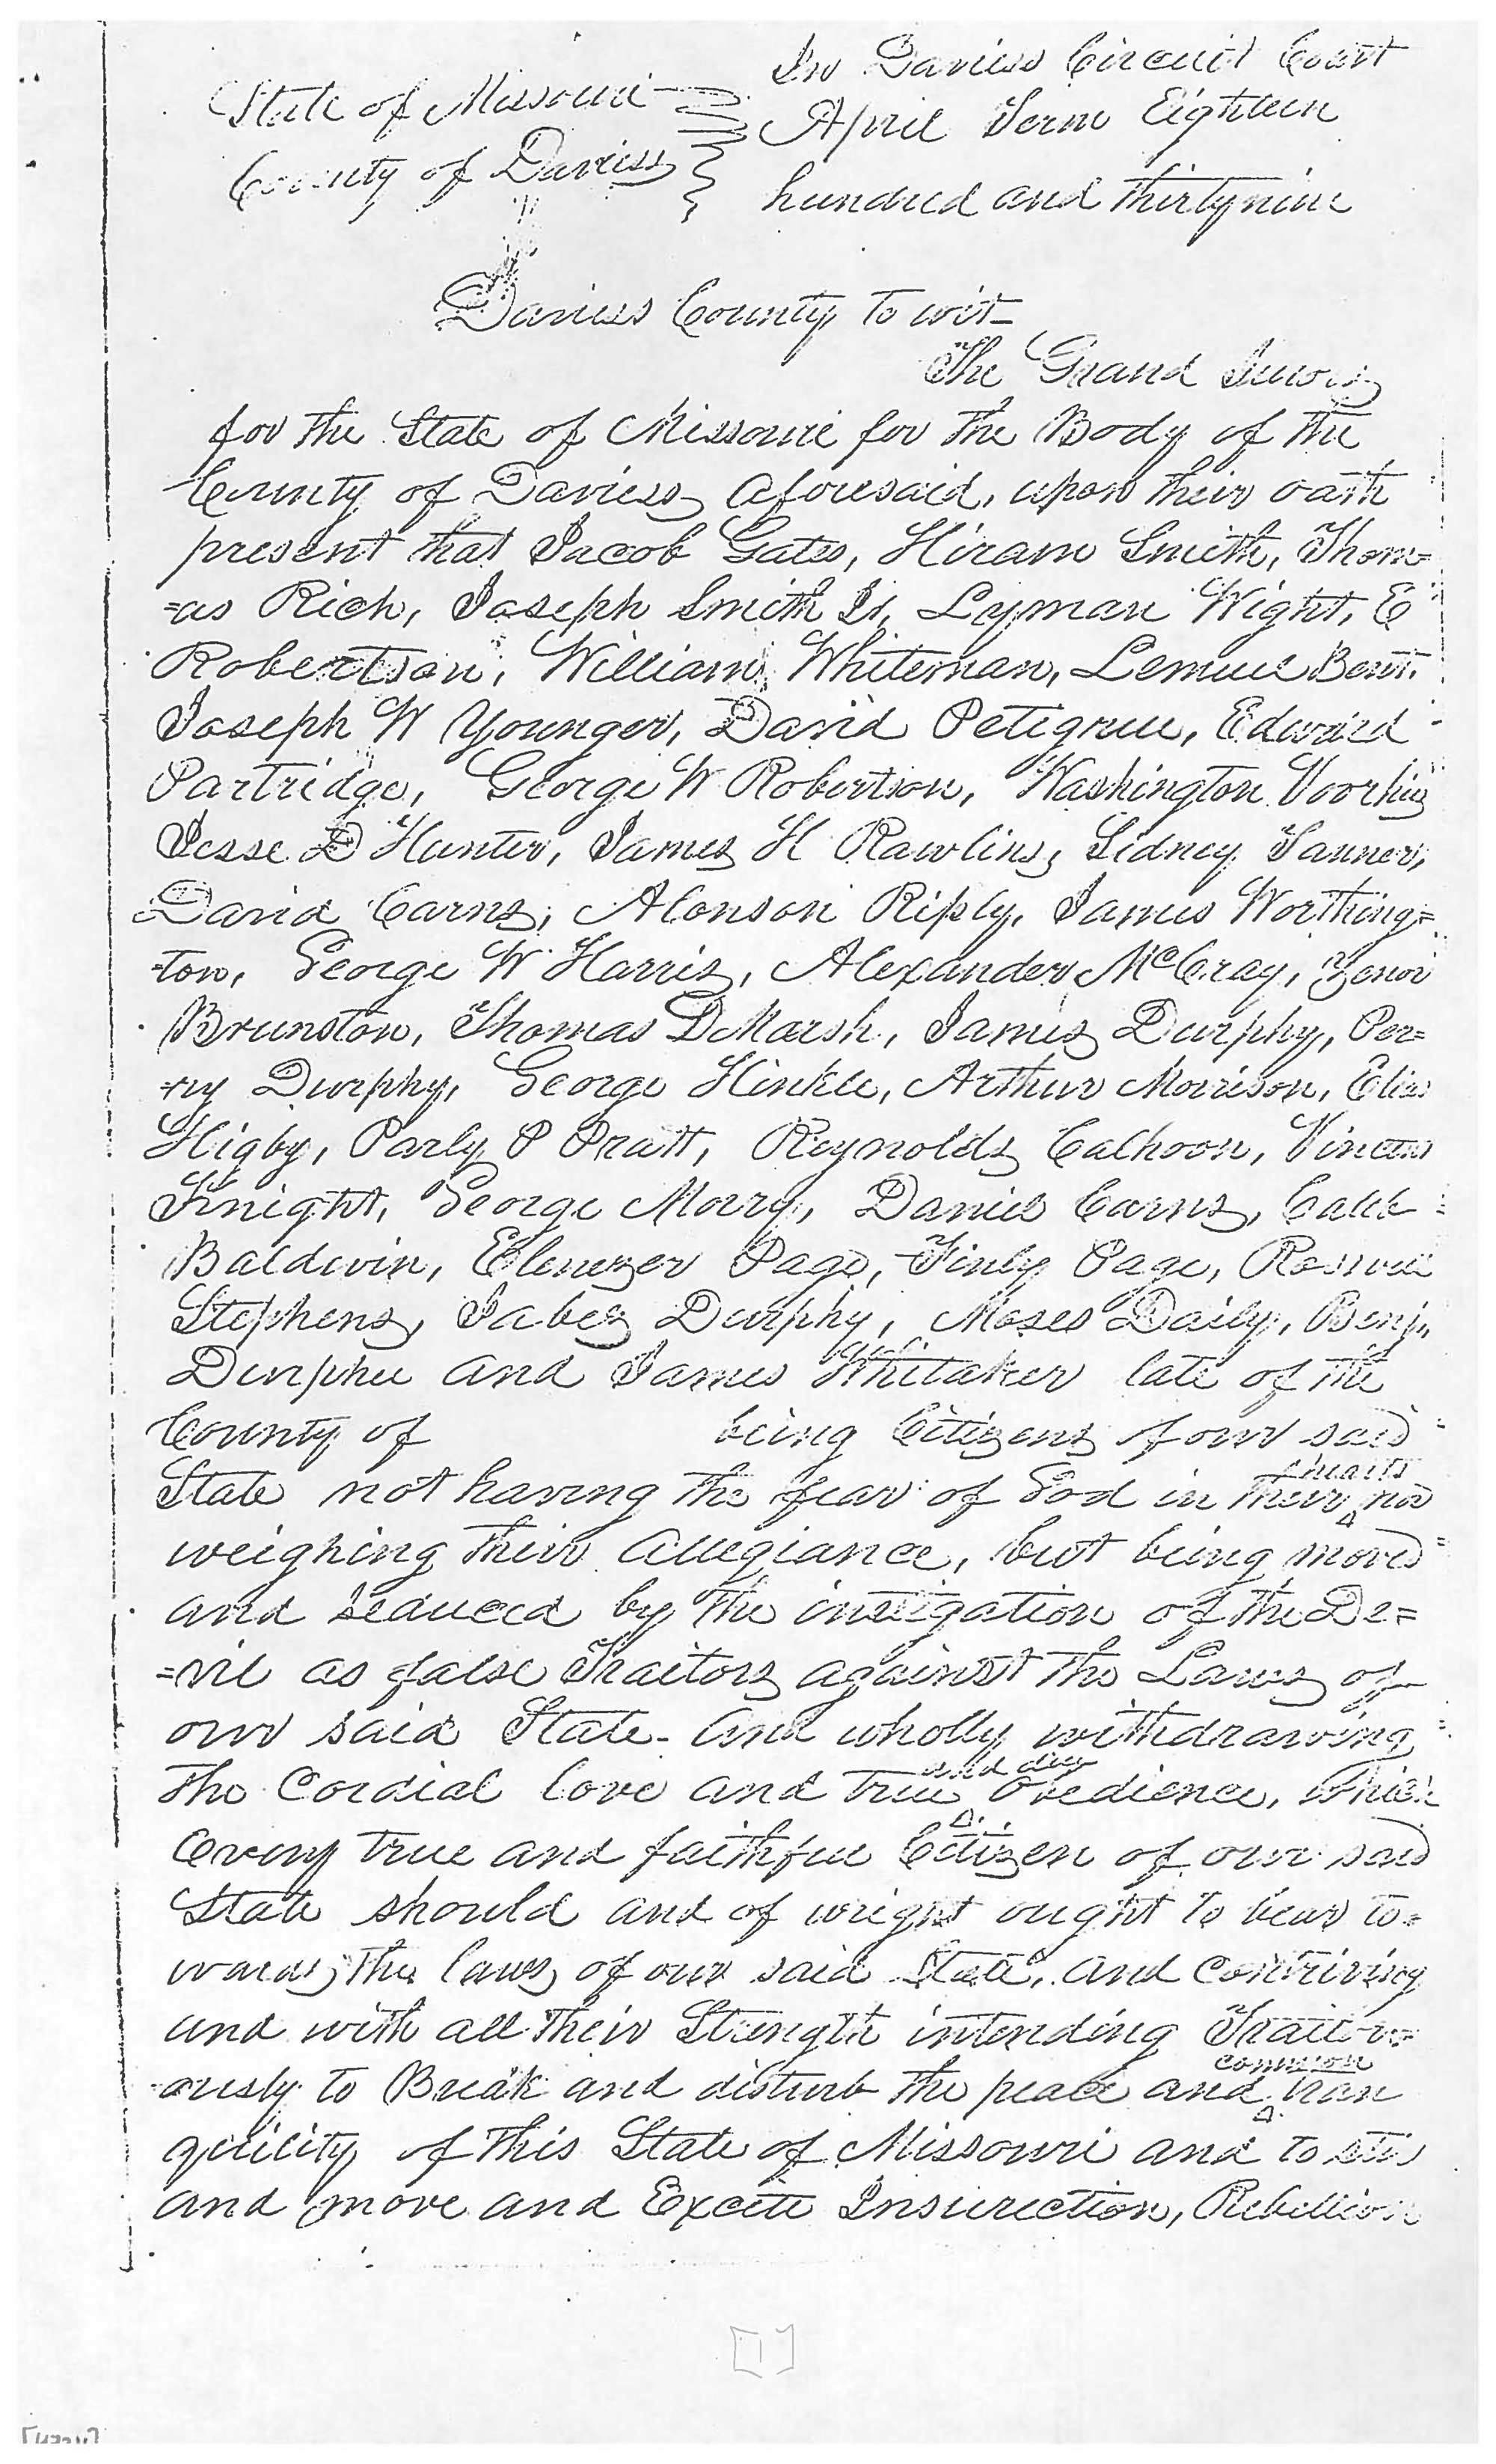 State of Missouri
County of Daviess
In Daviess Circuit Court
April Term Eighteen
hundred and thirtynine
Daviess County to wit_
The Grand Jurors
for the State of Missouri for the Body of the
County of Daviess aforesaid, upon their oath
present that Jacob Gates, Hiram Smith, Thom=
=as Rich, Joseph Smith Jr, Lyman Wight, E
Robertson, William Whiteman, Lemuel Bent.
Joseph W Younger, David Petigrue, Edward
Partridge, George W Robertson, Washington Voorhies
Jesse D Hunter, James H Rawlins, Sidney Tanner,
David Carns, Alonson Riply, James Worthing=
=ton, George W Harris, Alexander McCray,
Brunston, Thomas D Marsh, James Durphy, Per=
=ry Durphy, George Hinkle, Arthur Morrison, Elias
Higby, Parly P Pratt, Reynolds Calhoon, Vincent
Knight, George Morry, Daniel Carns, Caleb
Baldwin, Ebenezer Page, Finly Page, Roswell
Stephens, Jabez Durphy, Moses Daily, Benj.
Durphee and James Whitaker late of the
County of being Citizens of our said
hearts
State not having the fear of God in their nor
weighing their allegiance, but being moved
and seduced by the instigation of the De=
=vil as false Traitors against the Laws of
our said State. and wholly withdrawing
and due
the Cordial love and true obedience, which
every true and faithful Citizen of our said
State should and of wright ought to bear to=
wards the laws of our said State, and contriving
and with all their Strength intending Traitor=
common
=ously to Break and disturb the peace and tran
quility of this State of Missouri and to stir
and move and Excite Insurection, Rebellion
[1]